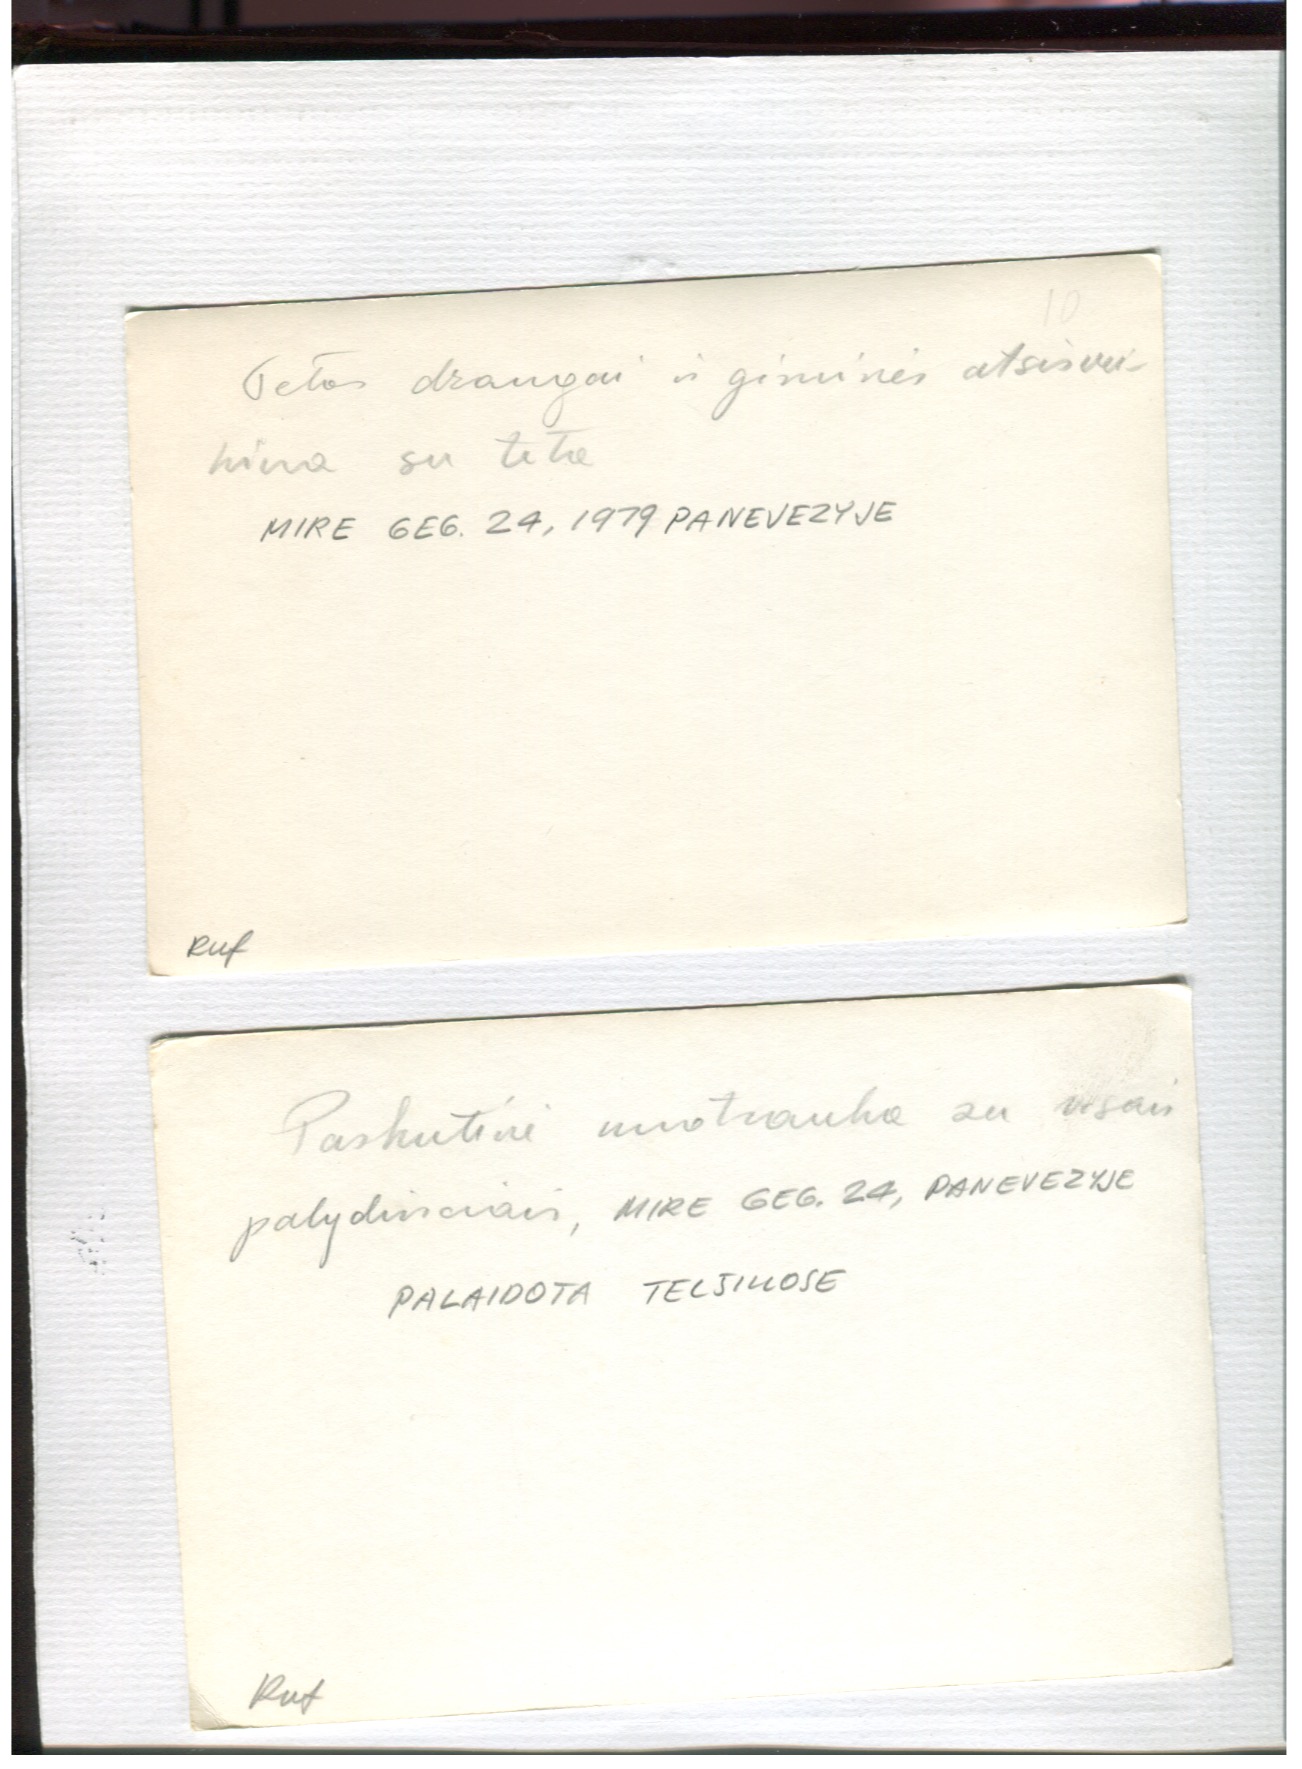 10
Tetos draugai ir giminės atsisvei-
kina su teta
MIRE GEG. 24, 1979 PANEVEZYJE
Ruf
Paskutinė nuotrauka su visais
palydinčiais, MIRE GEG. 24, PANEVEZYJE
PALAIDOTA TELSIUOSE
Ruf